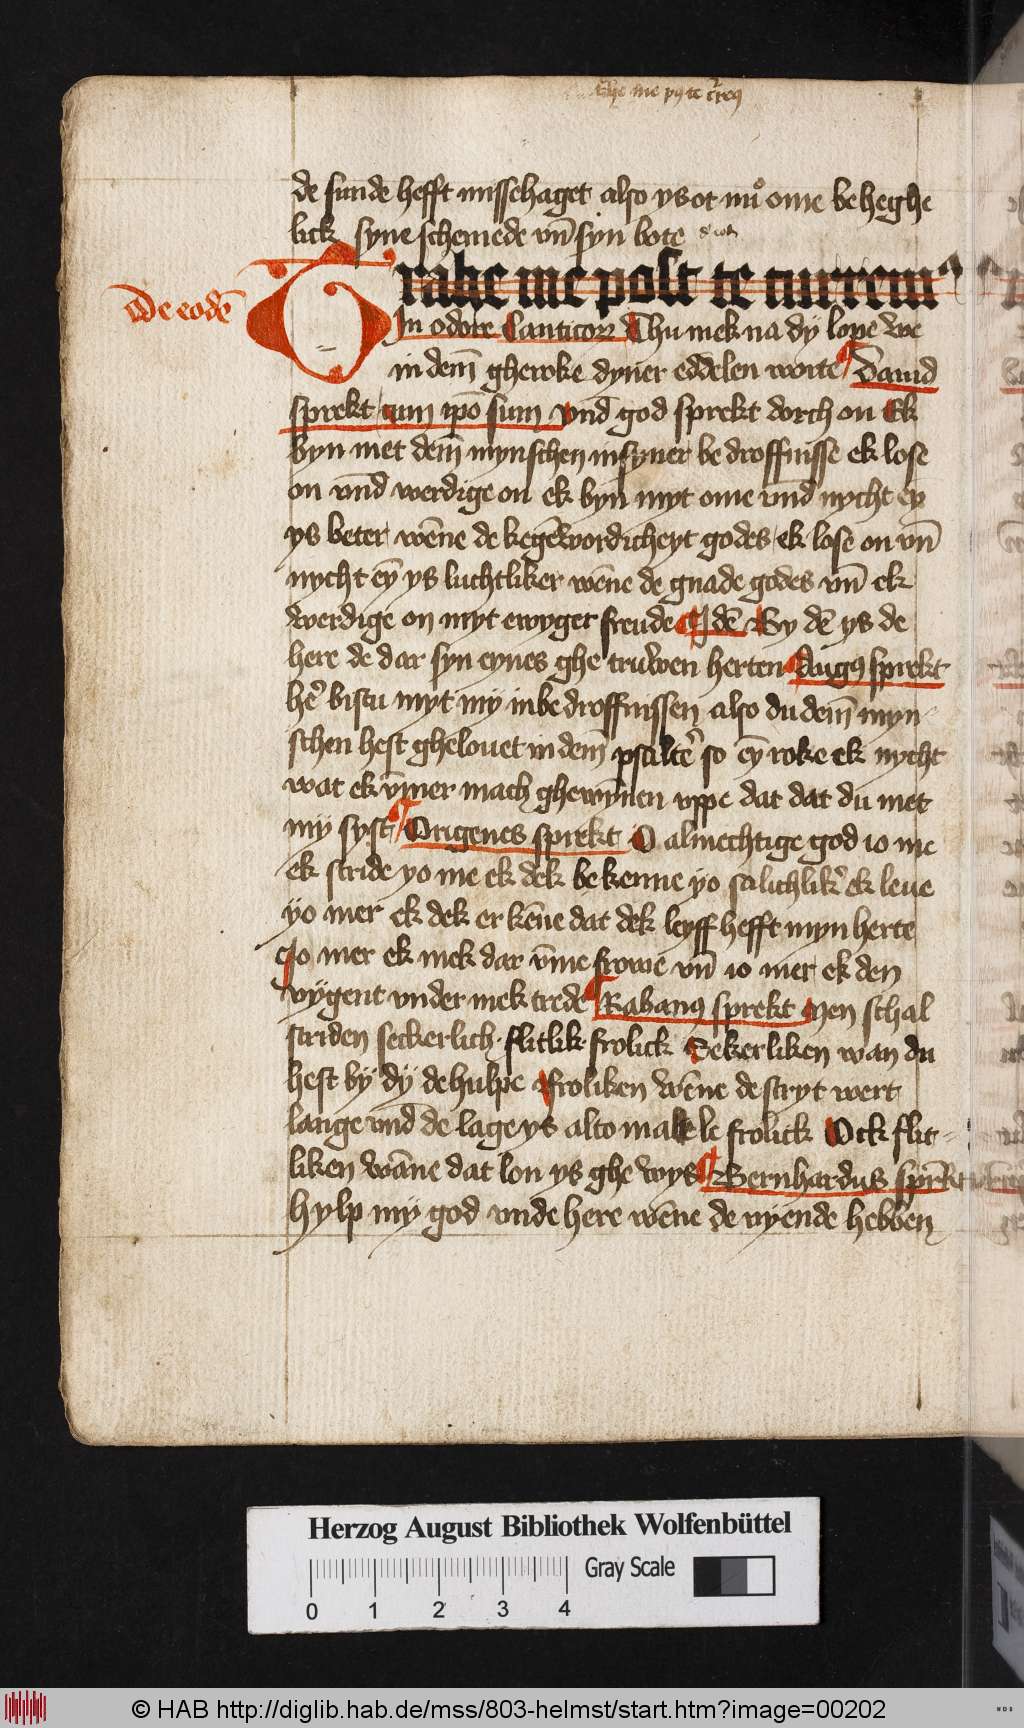 Trahe me post te c̄rem9
de sunde hefft misschaget also ys ot nuͦ ome be heghe
lick syne schemede vn̄ syn bote
De eodē
Trahe me post te currem9
In odore Canticor Thu mek na dÿ lope we
in dem̄ gheroke dyner eddelen worte Dauid
sprekt cum ip̄o sum vnd god sprekt dorch on Ek
byn met dem̄ mynschen in syner be droffnisse ek lose
on vnd̄ werdige on ek byn myt ome vnd nycht eȳ
ys beter wēne de kegēwordicheyt godes ek lose on vn̄
nycht eȳ ys luchtliker wēne de gnade godes vn̄ ek
werdige on myt ewyger freude Idē By dē ys de
here de dar syn eynes ghe truwen herten Augu9 sprekt
he᷑ bistu myt my in be droffnissen also du dem̄ myn
schen hest ghelouet in dem̄ psalte᷑ so eȳ roke ek nycht
wat ek v̄mer mach ghewyn̄en vppe dat dat du met
mÿ syst Origenes sprekt O almechtige god io me
ek stride yo me ek dek be kenne yo salichlik᷑ ek leue
ÿo mer ek dek er kēne dat dek leyff hefft myn herte
Jo mer ek mek dar v̄me frowe vn̄ io mer ek den
vygent vnder mek trede Raban9 sprekt Men schal
striden seckerlich flitlik frolick Sekerliken wan du
hest bÿ dÿ de hulpe Froliken wēne de stryt wert
lange vnd de lage ys alto male frolick Ock flit
liken wāne dat lon ys ghe wys Bernhardus spr̄kt
hylp mÿ god vnde here wēne de vyende hebben
Herzog August Bibliothek Wolfenbüttel
Gray Scale
0 1 2 3 4
© HAB http://diglib.hab.de/mss/803-helmst/start.htm?image=00202